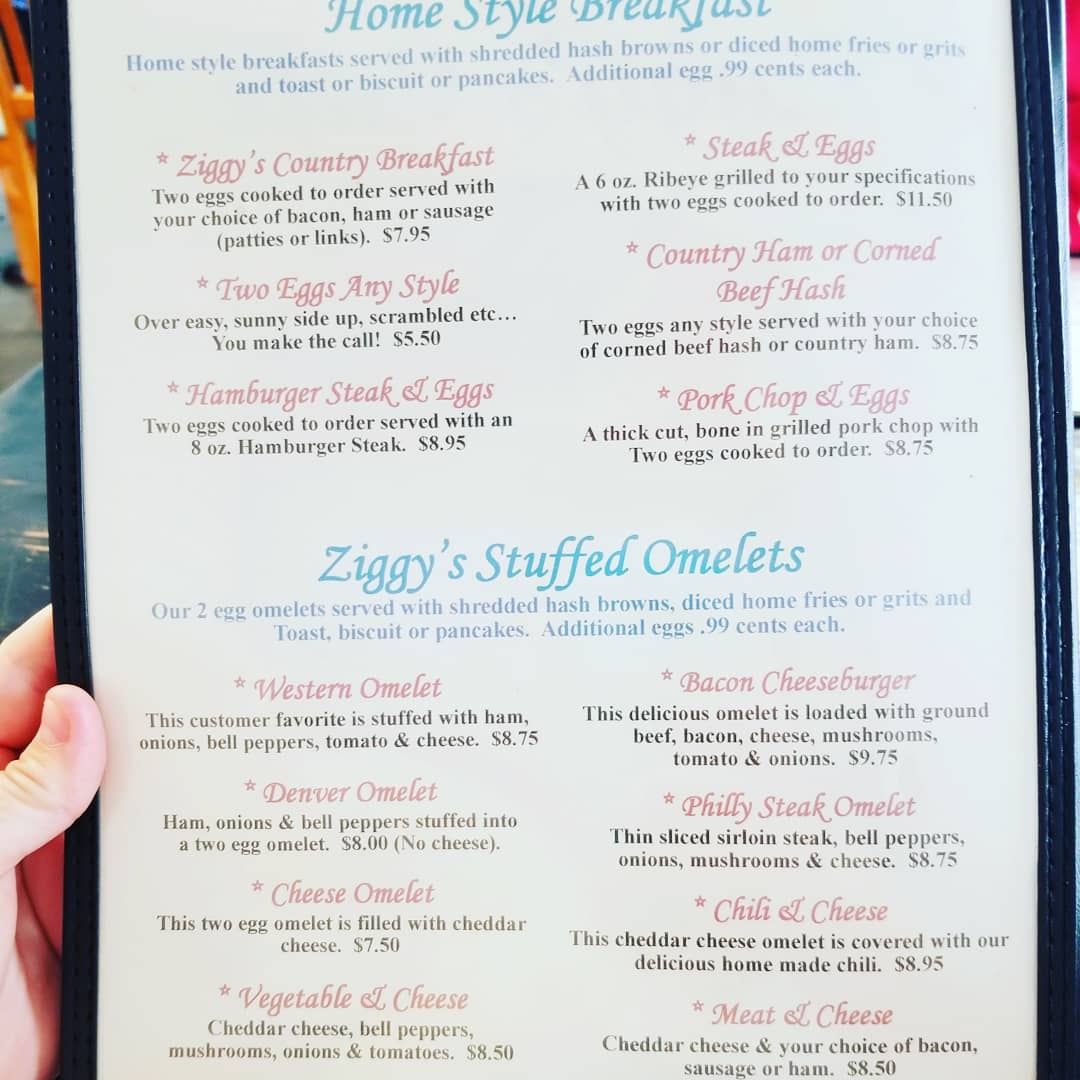 Home Style Breakfast
Home style breakfasts served with shredded hash browns or diced home fries or grits
and toast or biscuit or pancakes. Additional egg .99 cents each.
* Ziggy's Country Breakfast
Two eggs cooked to order served with
your choice of bacon, ham or sausage
(patties or links). $7.95
* Two Eggs Any Style
Over easy, sunny side up, scrambled etc...
You make the call! $5.50
* Hamburger Steak & Eggs
Two eggs cooked to order served with an
8 oz. Hamburger Steak. $8.95
* Steak & Eggs
A 6 oz. Ribeye grilled to your specifications
with two eggs cooked to order. $11.50
* Country Ham or Corned
Beef Hash
Two eggs any style served with your choice
of corned beef hash or country ham. $8.75
* Pork Chop & Eggs
A thick cut, bone in grilled pork chop with
Two eggs cooked to order. $8.75
Ziggy's Stuffed Omelets
Our 2 egg omelets served with shredded hash browns, diced home fries or grits and
Toast, biscuit or pancakes. Additional eggs .99 cents each.
* Western Omelet
This customer favorite is stuffed with ham,
onions, bell peppers, tomato & cheese. $8.75
* Denver Omelet
Ham, onions & bell peppers stuffed into
a two egg omelet. $8.00 (No cheese).
* Cheese Omelet
This two egg omelet is filled with cheddar
cheese. $7.50
* Vegetable & Cheese
Cheddar cheese, bell peppers,
mushrooms, onions & tomatoes. $8.50
* Bacon Cheeseburger
This delicious omelet is loaded with ground
beef, bacon, cheese, mushrooms,
tomato & onions. $9.75
* Philly Steak Omelet
Thin sliced sirloin steak, bell peppers,
onions, mushrooms & cheese. $8.75
* Chili & Cheese
This cheddar cheese omelet is covered with our
delicious home made chili. $8.95
* Meat & Cheese
Cheddar cheese & your choice of bacon,
sausage or ham. $8.50